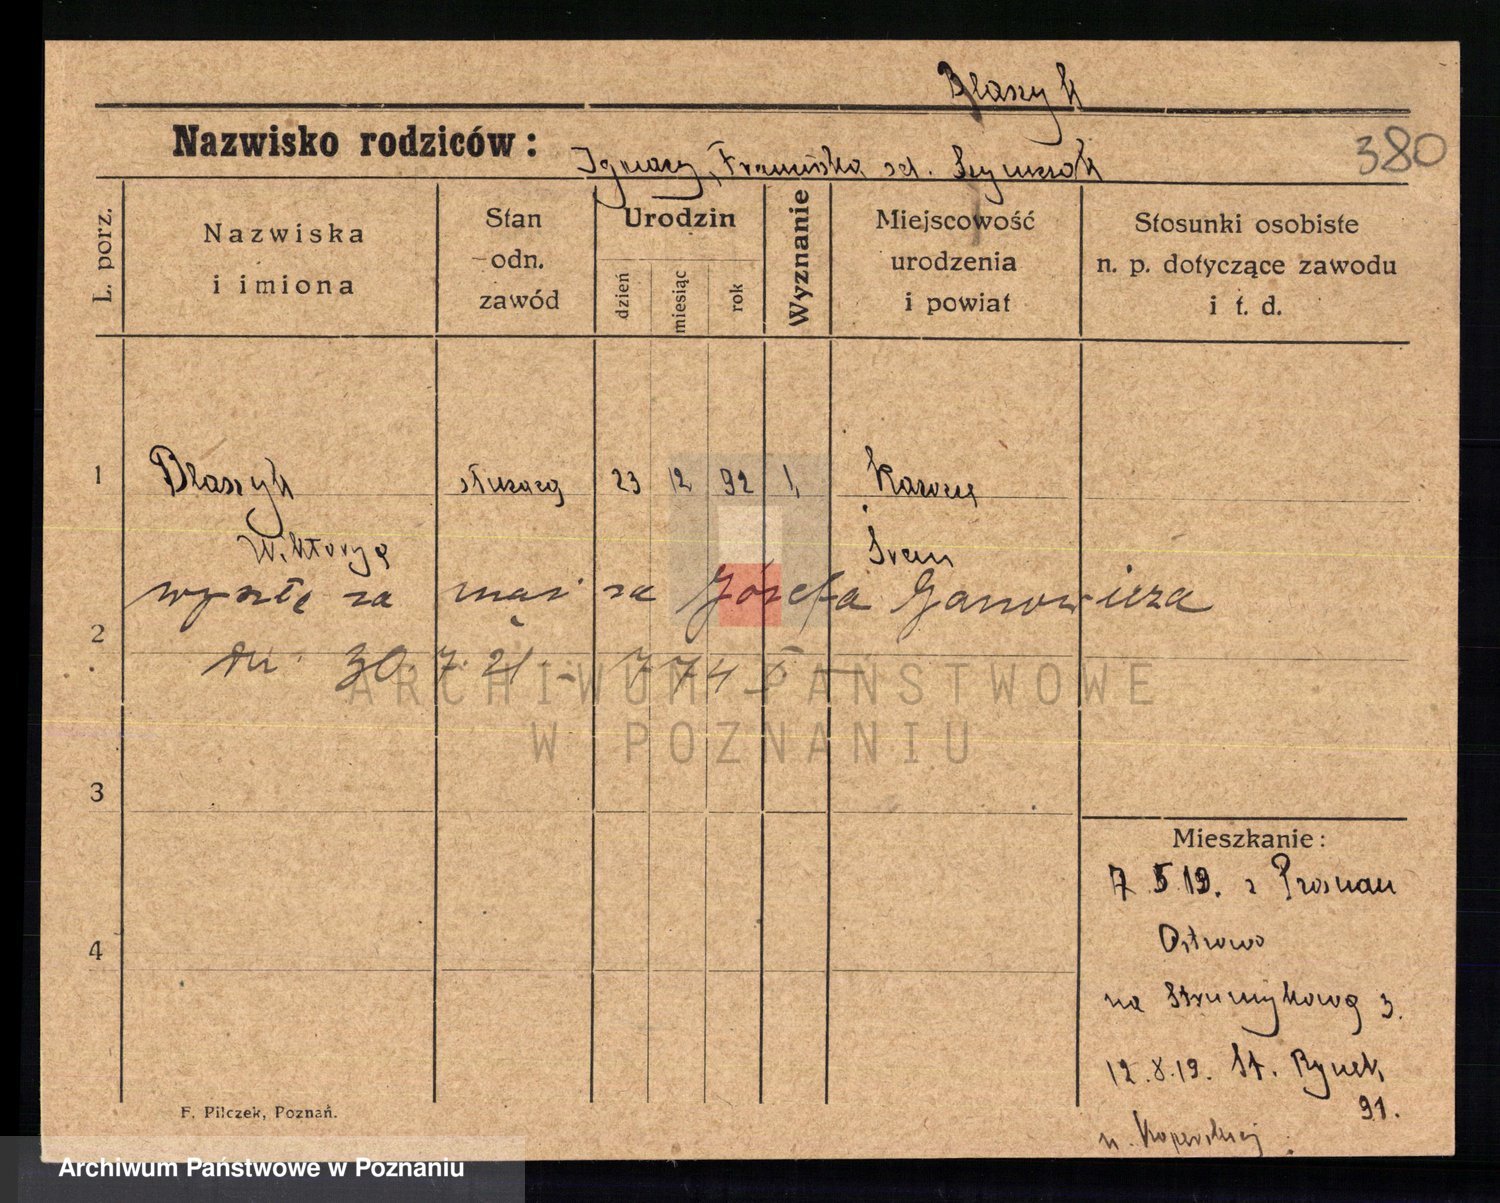 Blaszyk
380
Nazwisko rodziców: Ignacy, Franciszka
L. porz.
Nazwiska i imiona
Stan odn. zawód
Urodzin
dzień
miesiąc
rok
Wyznanie
Miejscowość urodzenia i powiat
Stosunki osobiste n. p. dotyczące zawodu i t. d.
1 Blaszyk służąca 23 12 92
Wiktorya Śrem
wyszła za mąż za Józefa Ganowicza
2
dn. 30.7.21 - 774
ARCHIWUM PAŃSTWOWE
W POZNANIU
3
Mieszkanie:
7 5 19. z Poznań
Ostrowo
4
na Strumykową 3.
12.8.19. St. Rynek,
91.
F. Pilczek, Poznań.
Archiwum Państwowe w Poznaniu